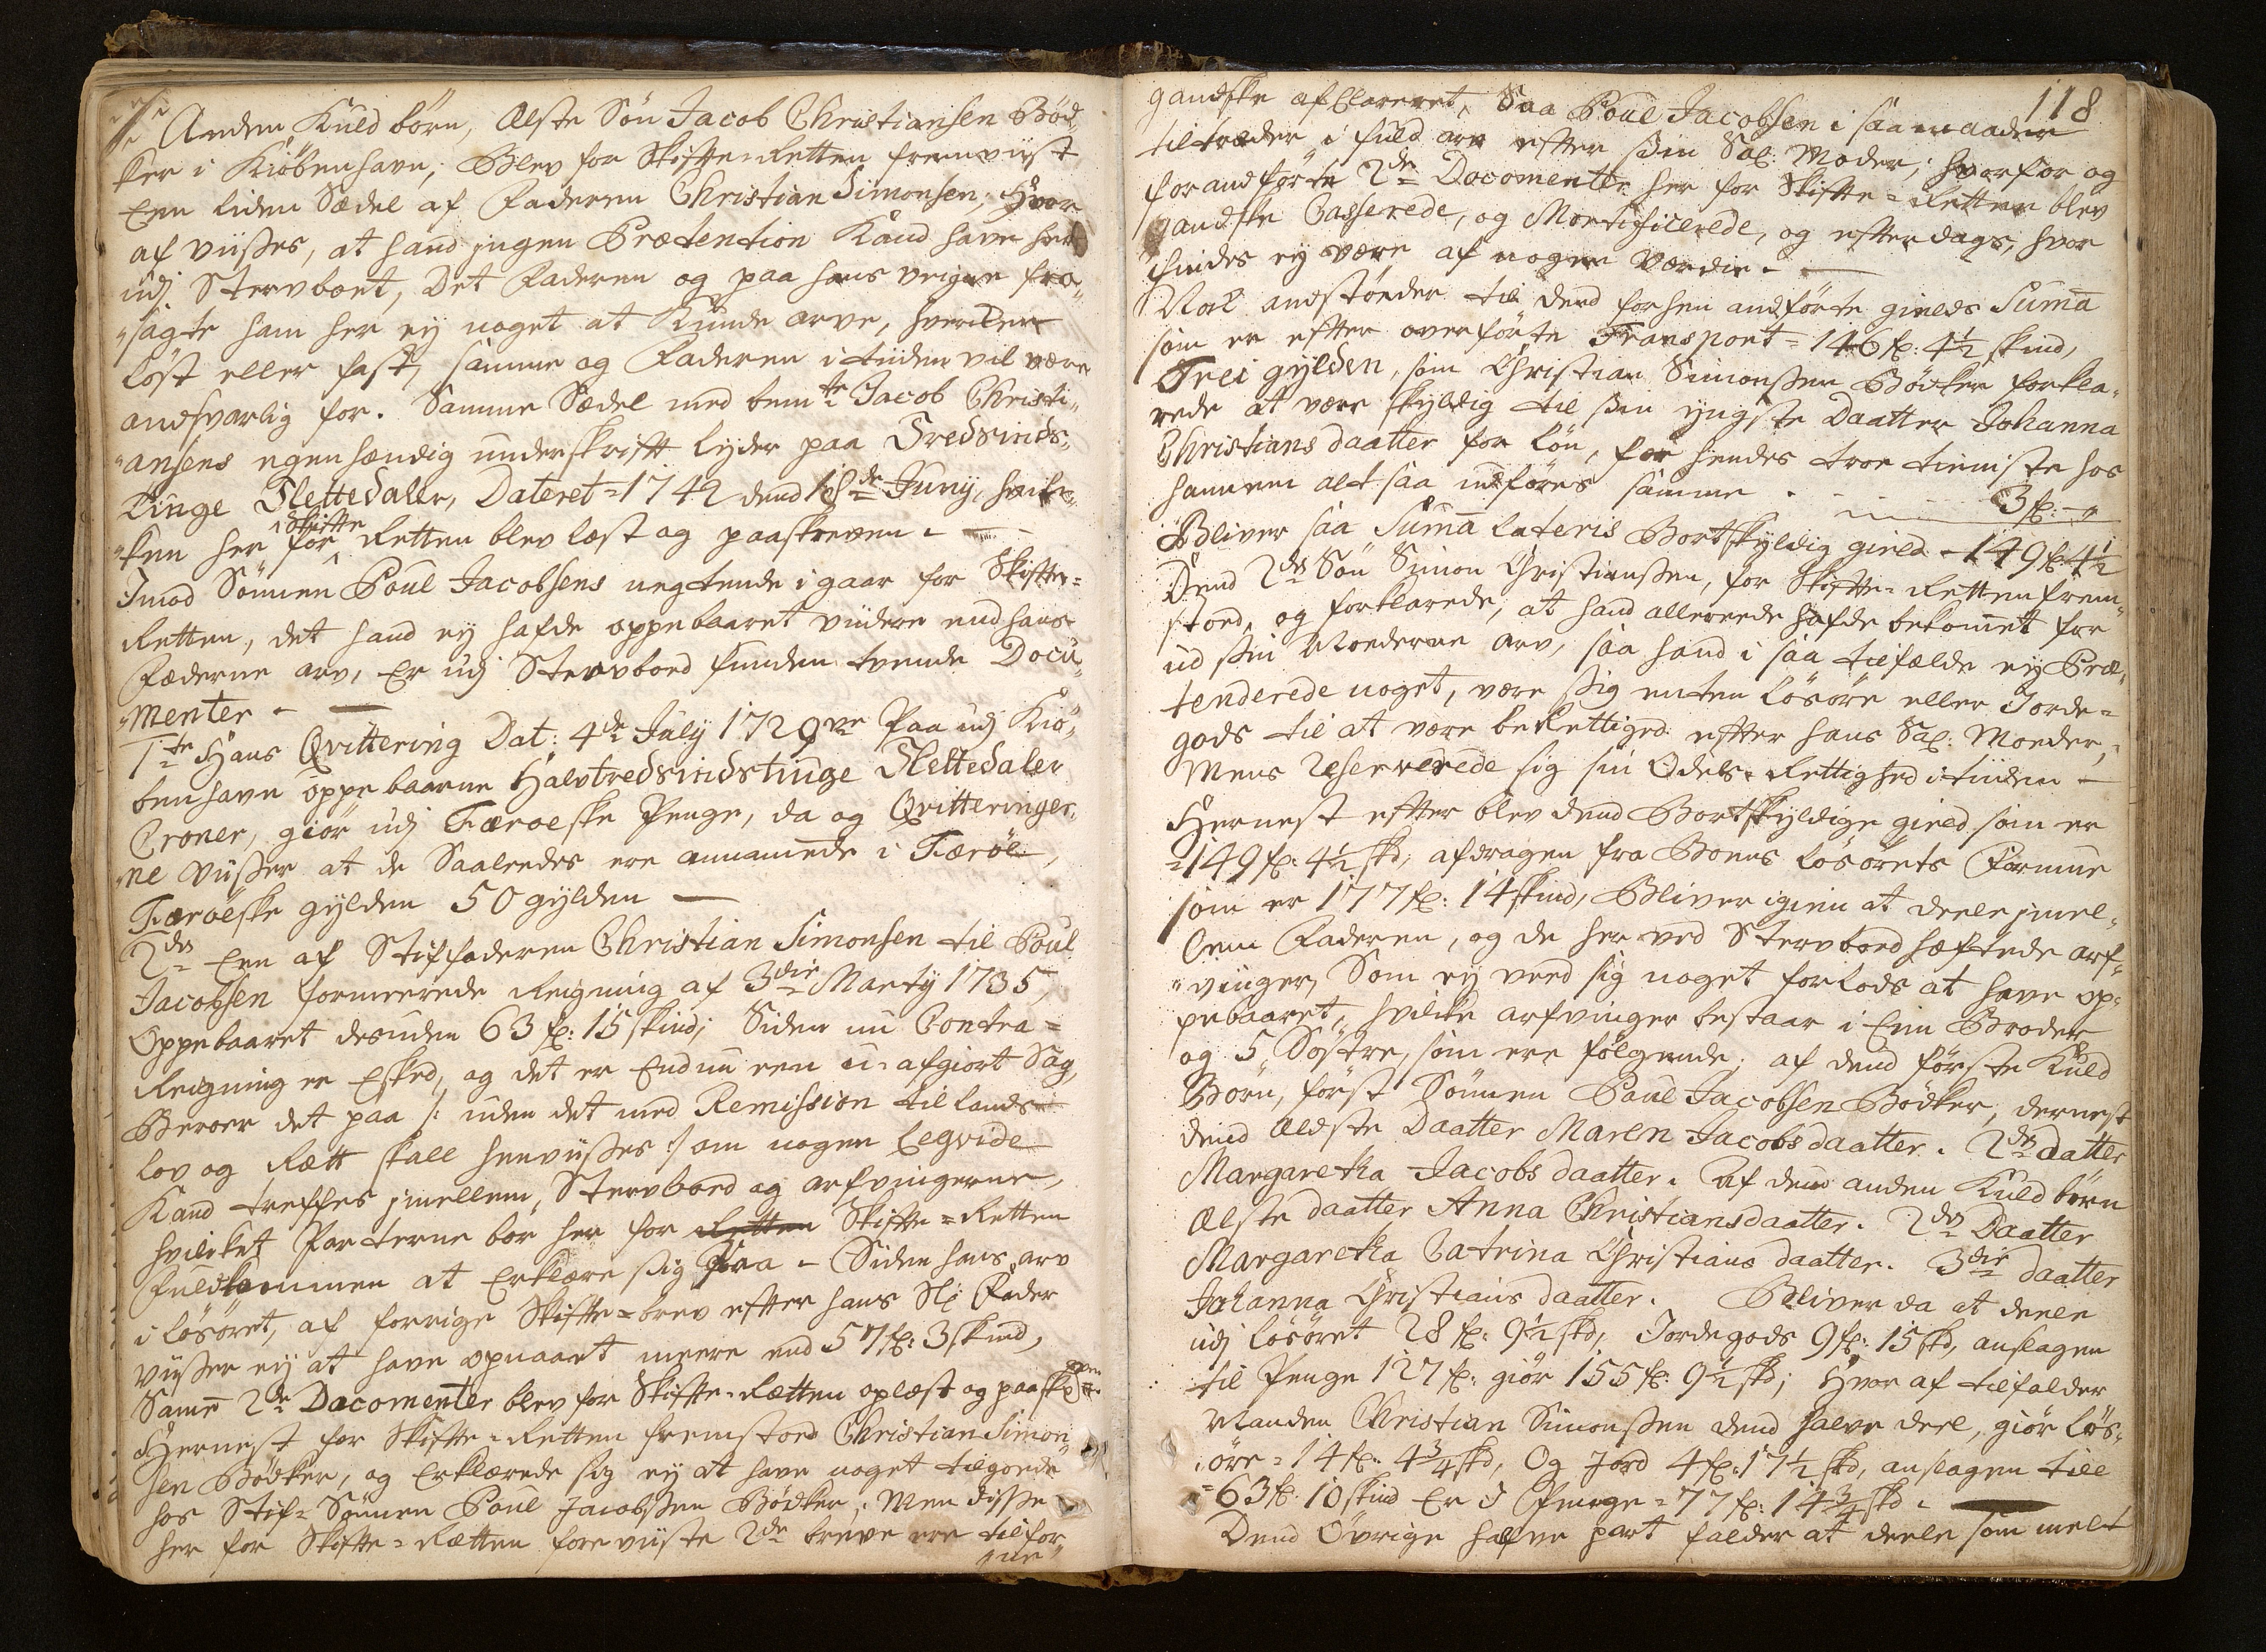 Anden Kuld börn, Elste Sön Jacob Christiansen Böd„
ker i Kiöbenhavn, Blev for Skifte-Retten fremviist
Een liden Sædel af Faderen Christian Simonsen, Hvor
af viißes, at hand ingen Prætention kand have her
udj Stervboet, Det Faderen og paa hans veigne fra„
„sagte ham her ej noget at kunde arve, hverken
löst eller fast, samme og Faderen i tiiden vil være
andsvarlig for. Samme Sædel med bemte Jacob Christi„
„ansens egenhændig underskrift lyder paa Tredsinds„
tinge Slettedaler, Dateret=1742 dend 16de Junij, hvil„
„ken her for Skifte Retten blev læst og paaskreven.
Imod Sönnen Poul Jacobsens negtende i gaar for Skifte=
Retten, det hand ej hafde oppebaaret viidere end hans
Fæderne arv, Er udj Stervboed funden tvende Docu„
„menter.
1te Hans Qvittering Dat: 4de July 1729 Paa udj Kiö„
benhavn oppebaarne Halvtredsindstinge Slettedaler
Croner, giör udj Færoeske Penge, da og Qvitteringer„
ne viißer at de Saaledes ere annammede i Færöe,
Færöeske gylden 50 gylden
2de Een af Stiffaderen Christian Simonsen til Poul
Jacobsen formeerede Reigning af 3die Marty 1735,
Oppebaaret desuden 63 fl: 15 skind; Siden nu Contra=
Reigning er Esked, og det er Endnu een u-afgiort Sag,
Beroer det paa /: uden det med Remission til lands
lov og Rætt skall henviißes :/ om nogen Eegvide
kand treffes imellem Stervboed og arfvingerne,
hvilcket Parterne bör her for Skifte=Retten
fuldkommen at Erklære sig paa. Siden hans arv
i lösöret, af forrige Skifte-brev efter hans Sl: Fader
viißer ej at have opnaaet meere end 57 fl: 3 skind,
Same 2de Documenter blev for Skifte-Rætten oplæst og paaskreven.
Hernest for Skifte-Retten fremstoed Christian Simon„
sen Bödker, og Erklærede sig ej at have noget tilgoede
hos Stif-Sönnen Poul Jacobßen Bödker, Men disse
her for Skifte-Rætten foreviiste 2de breve ere tilfor„
ne
118
gandske afclareret, Saa Poul Jacobsen i saa maader
tiltræder i fuld arv efter sin Sal: Moder, hvorfor og
forandförte 2de Documenter her for Skifte-Retten blev
gandske Casserede, og Mortificerede, og efterdags, hvor
findes ej være af nogen værdie.
Nock anstöeder til dend forhen andförte gields Suma
som er efter overförte Transport=146 fl: 4½ skind,
Trei gylden, som Christian Simonßen Bödker forkla„
rede at være skyldig til sin yngste Daatter Johanna
Christiansdaatter for lön, for hendes troe tieniste hos
hannem alt saa indföres samme . . . . 3 fl: -„
Bliver saa Suma lateris Bortskyldig gield - 149 fl: 4½
Dend 2den Sön Simon Christianßen, for Skifte-Retten frem„
stoed, og forklarede, at hand allereede hafde bekomet for
ud sin Moederne arv, saa hand i saa tilfælde ej Præ„
tenderede noget, være sig enten lösöre eller Jorde=
gods til at være berettiged efter hans Sal: Moeder,
Mens Reserverede sig sin Odels-Rettighed i tiiden
Hernest efter blev dend Bortskyldige gield som er
=149 fl: 4½ skd, afdragen fra Boens lösörets Formue
som er 177 fl: 14 skind, Bliver igien at deele imel„
lem Faderen, og de her ved Stervboed hæftede arf„
„vinger, Som ej veed sig noget forlods at have op„
pebaaret, hvilcke arfvinger bestaar i Een Broder
og 5 Söstre, som ere fölgende. af dend förste Kuld
Börn, först Sönnen Poul Jacobsen Bödker, dernest
dend Ældste Daatter Maren Jacobsdaatter. 2den datter
Margaretha Jacobsdaatter. Af dend anden Kuld börn
Elste daatter Anna Christiansdaatter. 2den Daatter
Margaretha Catrina Christians daatter. 3die daatter
Johanna Christians daatter. Bliver da at deele
udj lösöret 28 fl: 9½ skd, Jordegods 9 fl: 15 skd, anslagen
til Penge 127 fl: giör 155 fl: 9½ skd; Hvor af tilfalder
Manden Christian Simonßen dend halve deel, giör lös„
öre=14 fl: 4¾ skd, Og Jord 4 fl: 17½ skd, anslagen till
=63 fl: 10 skind Er i Penge=77 fl: 14¾ skd.
Dend Övrige halve part falder at deele som melt